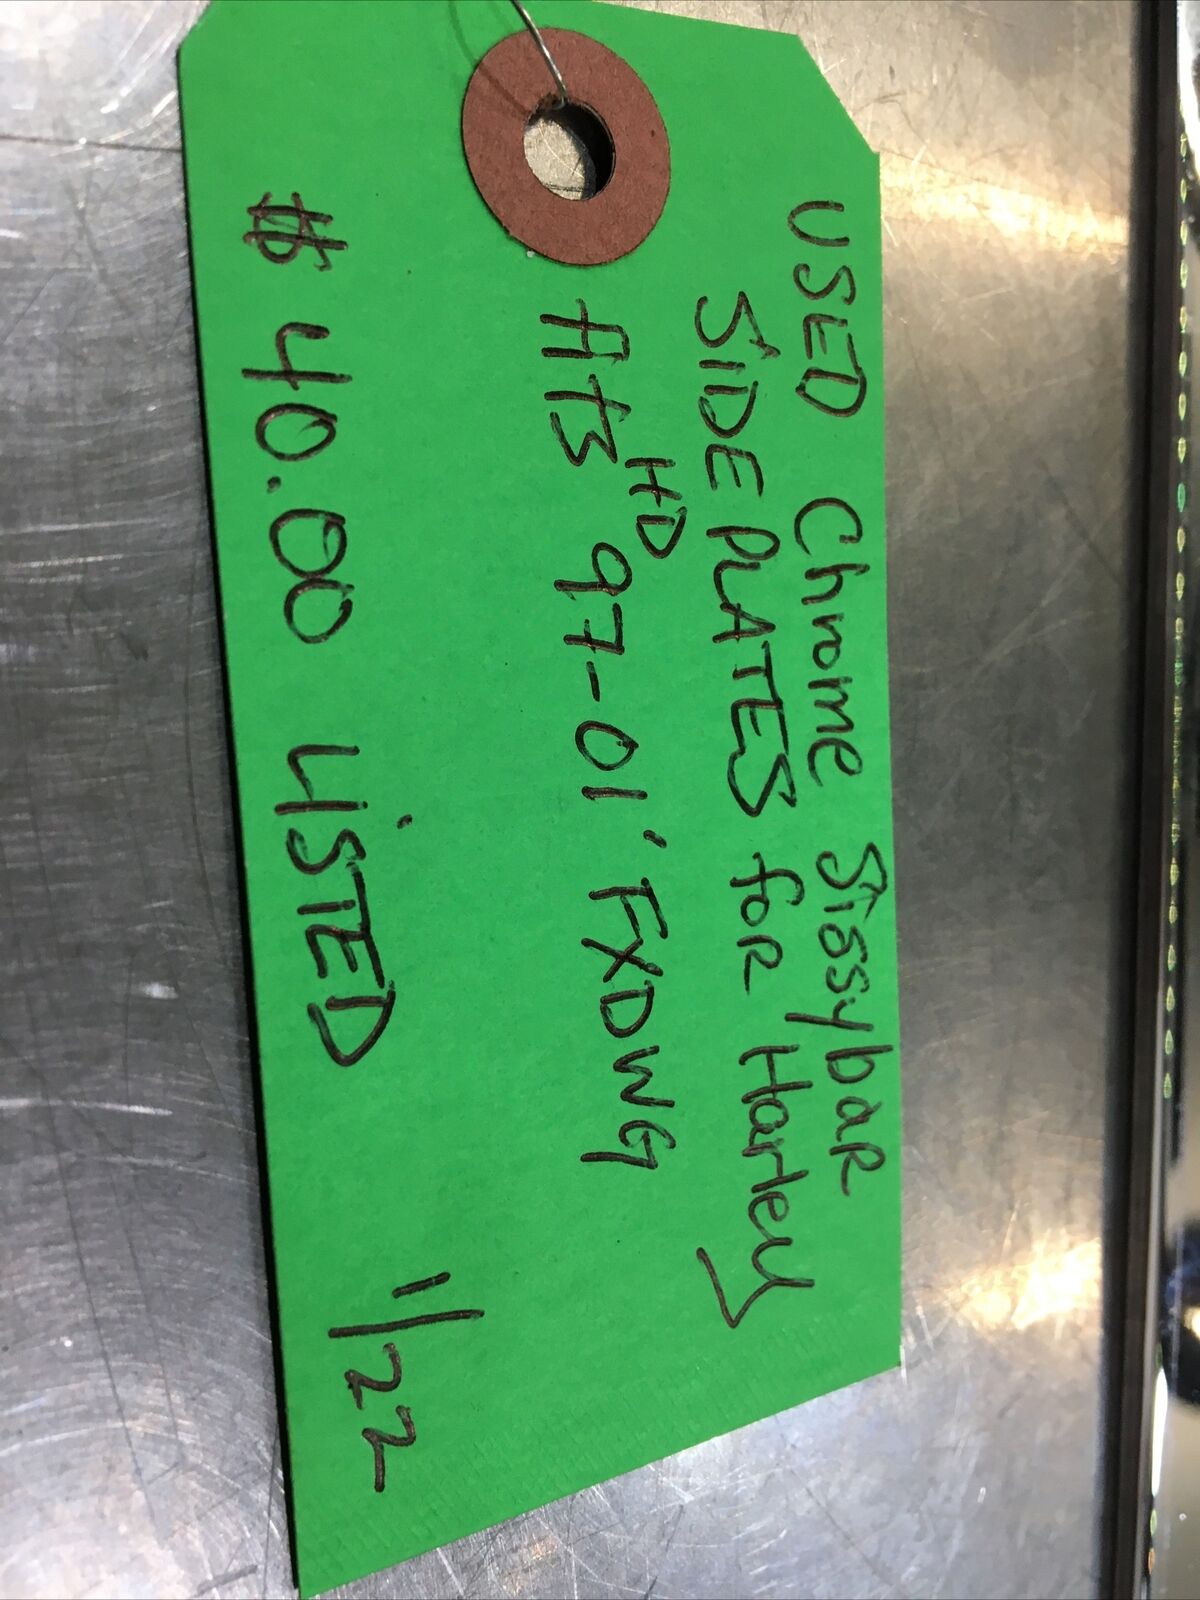 USED Chrome Sissybar
SIDE PLATES for Harley
HD
fits 97-01' FXDWG
$ 40.00 LISTED 1/22